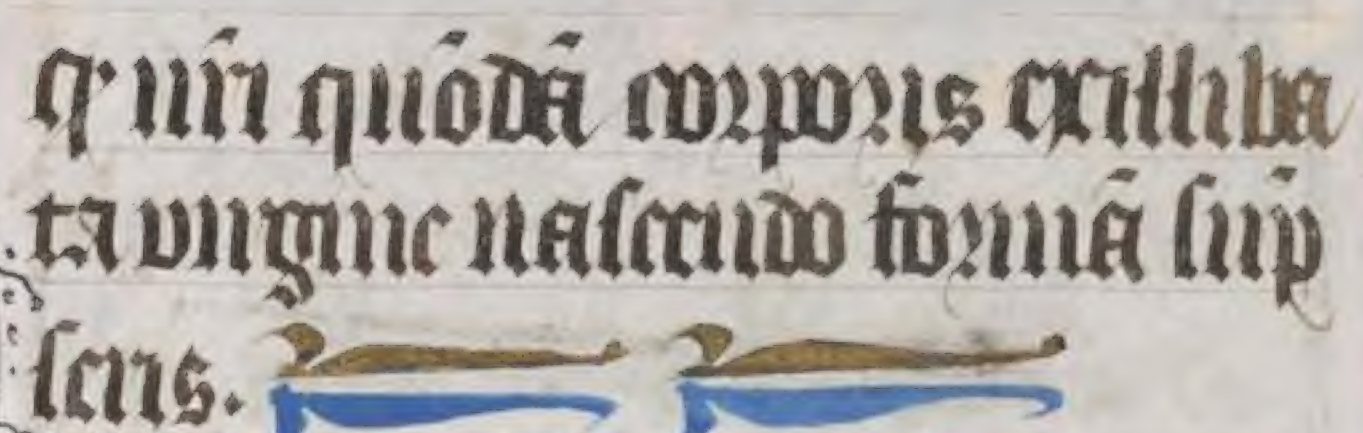 qͥ nr̄i quōdā corporis ex illiba
ta virgine nascendo formā sūp
seris.